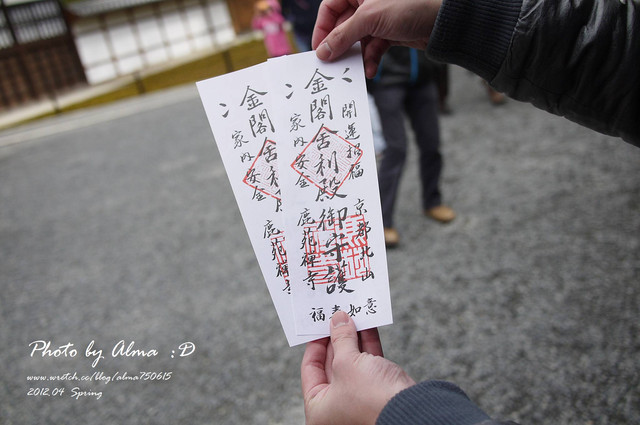 開運招福 京都北山
金閣舎利殿御守護
家内安全 鹿苑禅寺
如意
福寿
金閣舎利
家内安全 鹿苑禅寺
Photo by Alma :D
www.wretch.cc/blog/alma750615
2012.04 Spring